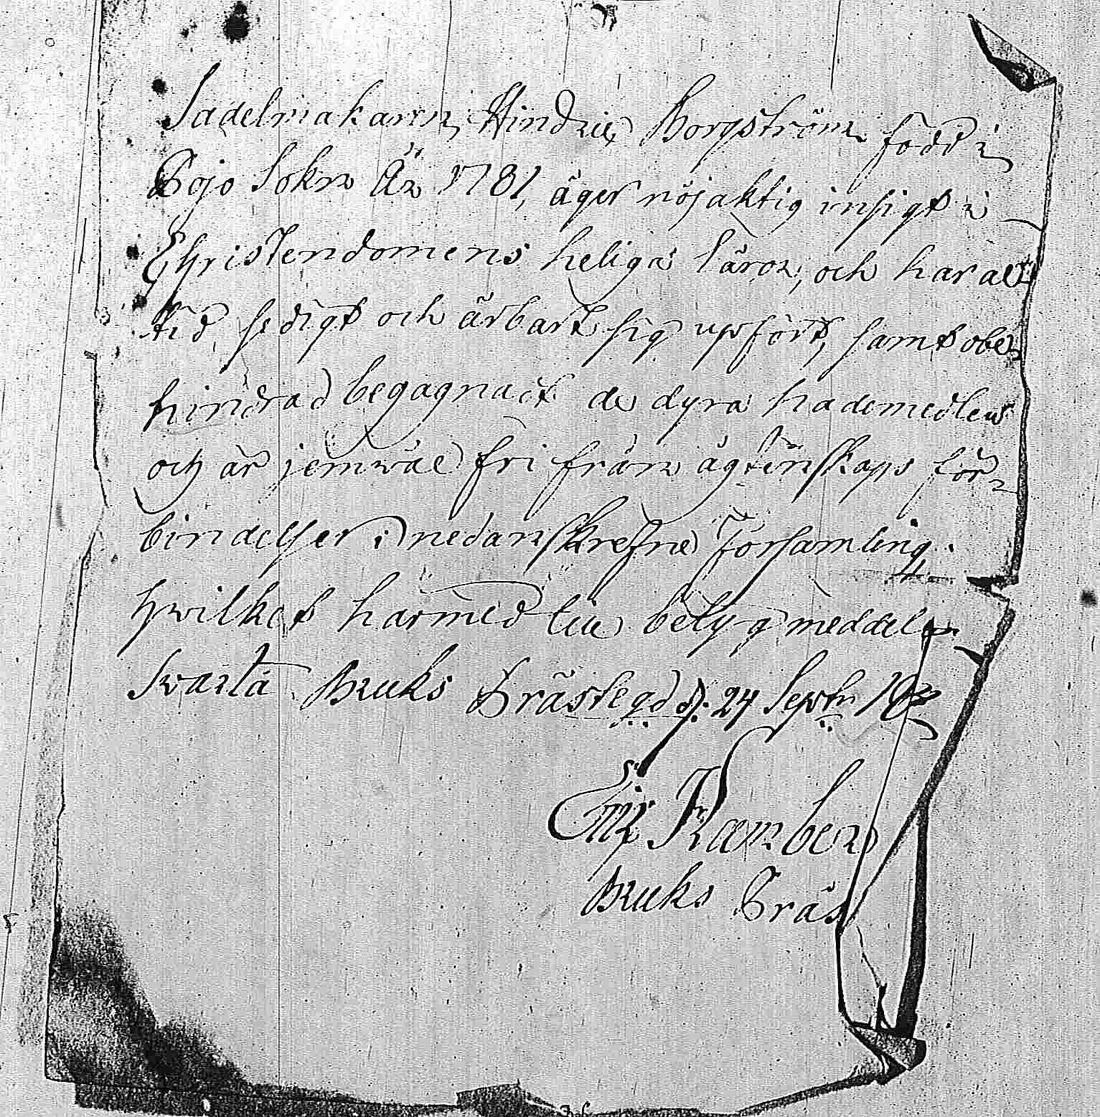 Sadelmakaren Hindric Borgström född i
Pojo Sokn År 1781, äger nöjaktig insigt i
Christendomens heliga läror, och har all
tid sedigt och ärbart sig upfört, samt obe
hindrad begagnadt de dyra nademedlen
och är jemwäl fri från ägtenskaps för
bindelser i nedanskrefne Församling.
Hwilket härmed till betyg meddelas
Svartå Bruks Prästegd d. 24 Septr
Eric
Bruks Präst